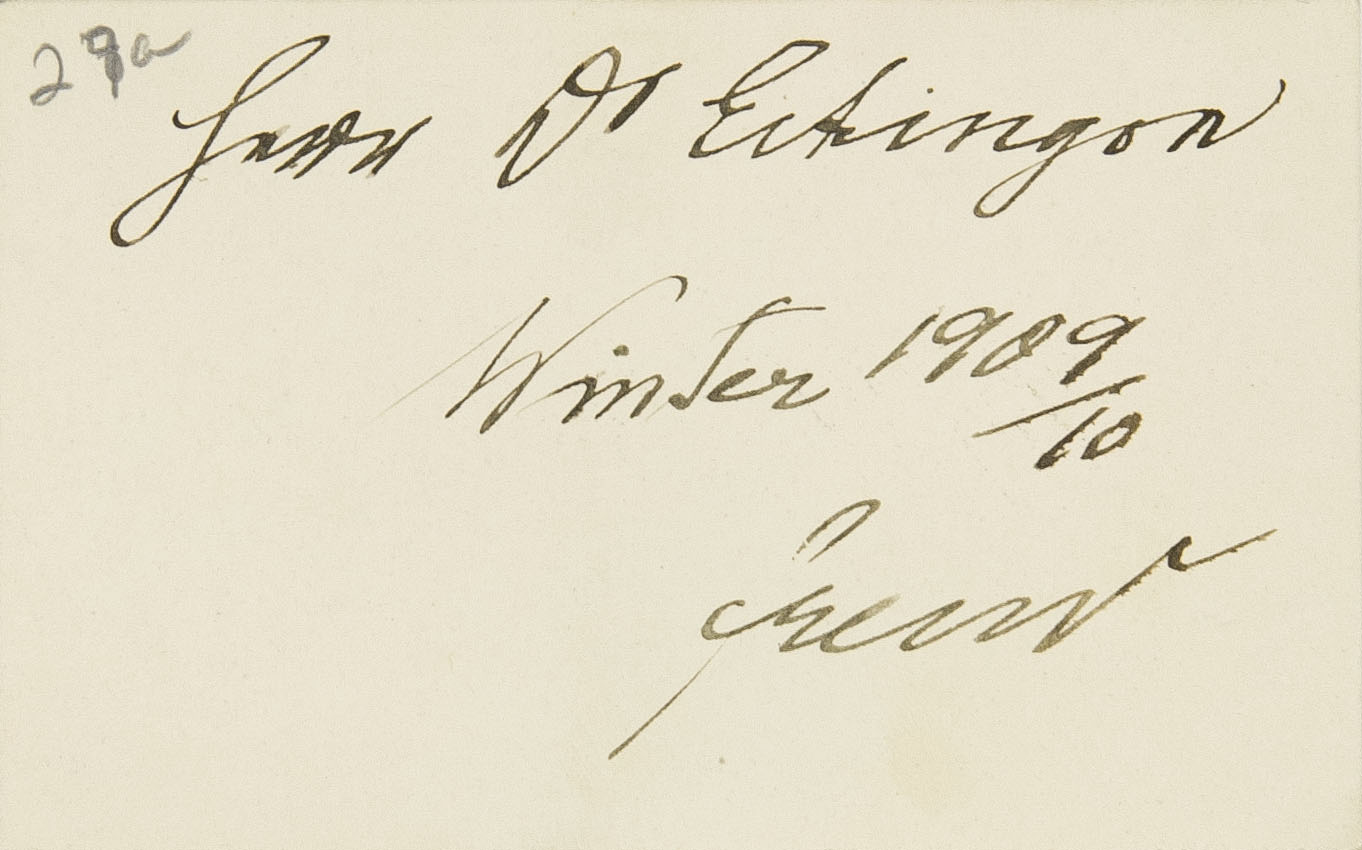 29a
Herr Dr Eitingon
Winter 1909
/10
Freud